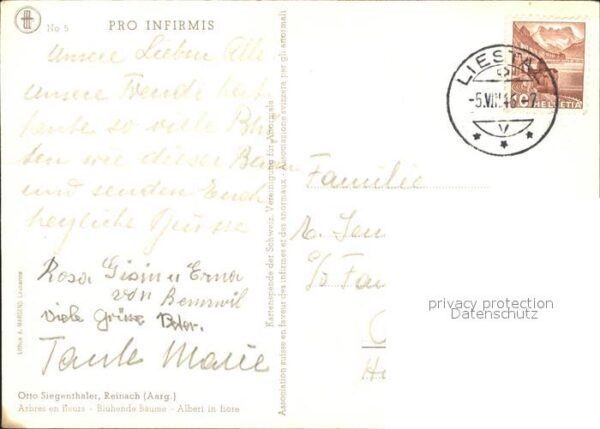 No 5 PRO INFIRMIS
Unsere Lieben Alle
unsere Freude hat
heute so viele Blü-
ten wie dieser Baum
und senden Euch
herzliche Grüsse
Rosa Gisin u Erna
von Bennwil
viele Grüsse Peter.
Tante Marie
Otto Siegenthaler, Reinach (Aarg.)
Arbres en fleurs - Blühende Bäume - Alberi in fiore
Lithos A. MARSENS, Lausanne
Kartenspende der Schweiz. Vereinigung für Anormale
Association suisse en faveur des infirmes et des anormaux - Associazione svizzera per gli anormali
LIESTAL
HELVETIA
Familie
c/o Fam
privacy protection
Datenschutz